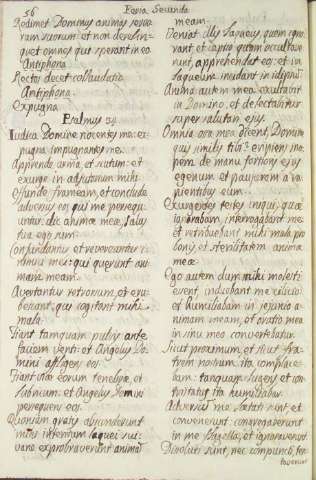 56
Feria Secunda
Redimet Dominus animas servo
rum suorum et non derelin
quet omnes qui sperant in eo
Antiphona
Rectos decet collaudatio
Antiphona.
Expugna
Psalmus 34
Iudica Domine nocentes me: ex
pugna impugnantes me.
Apprende arma, et scutum: et
exurge in adjutorium mihi
Effunde frameam, et conclude
adversus eos, qui me persequ
untur: dic animæ meæ, salus
tua ego sum.
Confundantur et revereantur:
querunt ani
mam meam.
Avertantur retrorsum, et eru
bescant, qui cogitant mihi
mala.
Fiant tamquam pulvis ante
faciem venti: et Angelus Do
mini affligens eos.
Fiant viæ eorum tenebræ, et
lubricum: et Angelus Domini
persequens eos.
Quoniam gratis absconderunt
mihi interitum laquei sui:
vane exprobraverunt animam
meam.
Veniat illi laqueus, quem igno
rant: et captio quam occultave
runt, apprehendat eos: et in
laqueum incidant in idipsum
Anima autem mea exultabit
in Domino, et delectabitur
super salutari suo.
Omnia ossa mea dicent, Domine
quis similis tibi? eripiens ino
pem de manu fortioris ejus
egenum et pauperem a ra
pientibus eum.
Exurgentes testes iniqui, quæ
ignorabam interrogabant me.
et retribuebant mihi mala pro
bonis, et sterilitatem animæ
meæ.
Ego autem dum mihi molesti
essent, induebant me cilicio.
et Humiliabam in jejunio a
nimam meam, et oratio mea
in sinu meo convertebatur.
Sicut proximum, et sicut fra
trem nostrum ita complace
bam: tanquam lugens et con
tristatus ita humiliabar.
Adversus me lætati sunt, et
convenerunt: congregaverunt
in me flagella, et ignoraverunt
Dissoluti sunt, nec compuncti, ten
taverunt